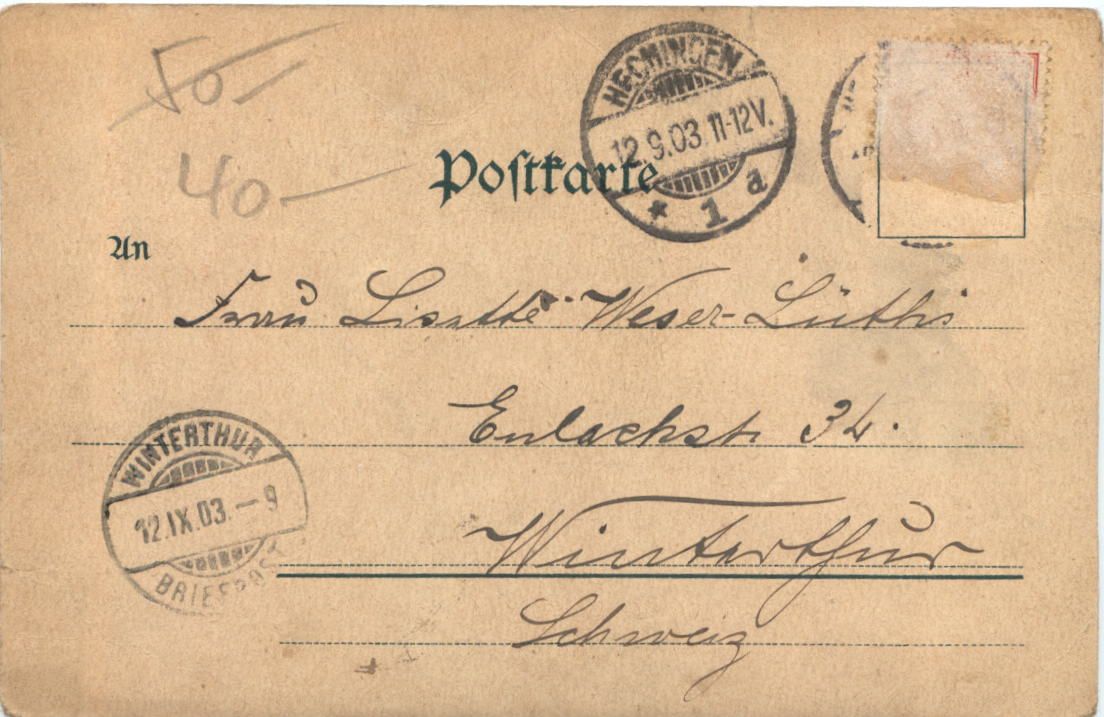 50-
40-
HECHINGEN
12.9.03.11-12V.
* 1 a
Postkarte
An
Frau Lisette Weser-Lüthi
Eulachstr. 34.
Winterthur
Schweiz
WINTERTHUR
12.IX.03.-9